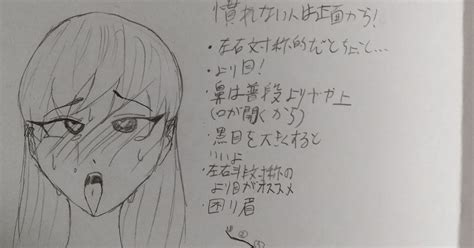 慣れない人は正面から!
・左右対称的だとちょと…
・より目!
・鼻は普段よりやや上
(口が開くから)
・黒目を大きくすると
いいよ
・左右非対称の
より目がオススメ
・困り眉
②
①